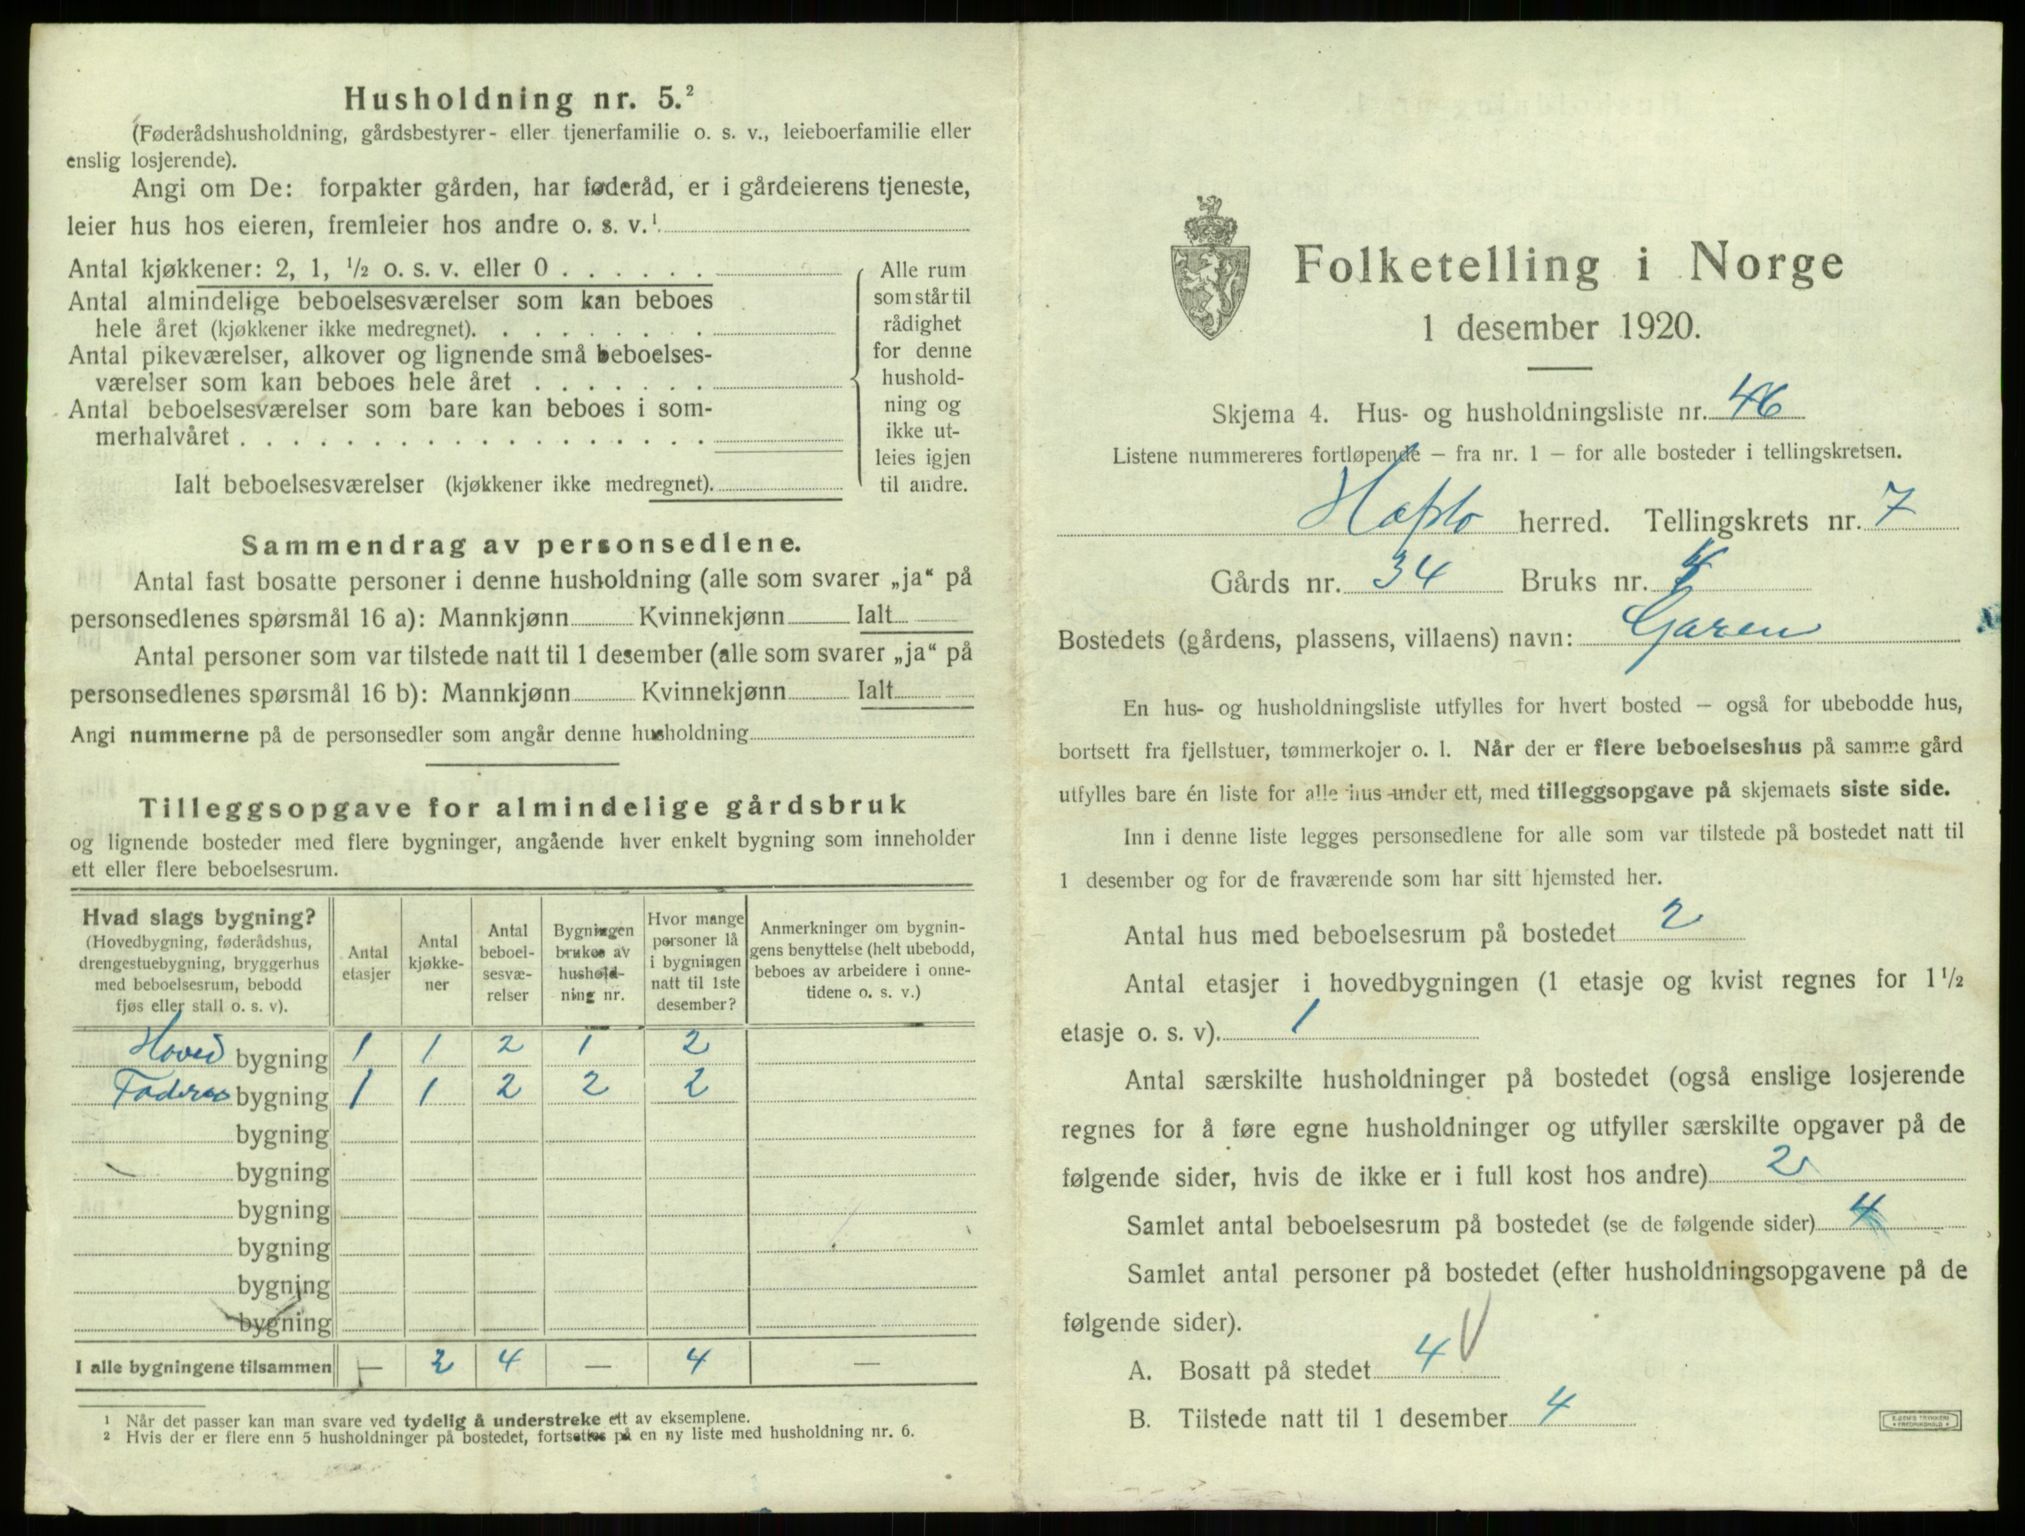 Husholdning nr. 5.²
(Føderådshusholdning, gårdsbestyrer- eller tjenerfamilie o. s. v., leieboerfamilie eller
enslig losjerende).
Angi om De: forpakter gården, har føderåd, er i gårdeierens tjeneste,
leier hus hos eieren, fremleier hos andre o. s. v.¹
Antal kjøkkener: 2, 1, ½ o. s. v. eller 0 . . . . . .
Antal almindelige beboelsesværelser som kan beboes
hele året (kjøkkener ikke medregnet). . . . . . . . .
Antal pikeværelser, alkover og lignende små beboelses-
værelser som kan beboes hele året . . . . . . .
Antal beboelsesværelser som bare kan beboes i som-
merhalvåret . . . . . . . . . . . . . . . . . .
Ialt beboelsesværelser (kjøkkener ikke medregnet).
Alle rum
som står til
rådighet
for denne
hushold-
ning og
ikke ut-
leies igjen
til andre.
Sammendrag av personsedlene.
Antal fast bosatte personer i denne husholdning (alle som svarer „ja“ på
personsedlenes spørsmål 16 a): Mannkjønn Kvinnekjønn Ialt
Antal personer som var tilstede natt til 1 desember (alle som svarer „ja“ på
personsedlenes spørsmål 16 b): Mannkjønn Kvinnekjønn Ialt
Angi nummerne på de personsedler som angår denne husholdning
Tilleggsopgave for almindelige gårdsbruk
og lignende bosteder med flere bygninger, angående hver enkelt bygning som inneholder
ett eller flere beboelsesrum.
Hvad slags bygning?
(Hovedbygning, føderådshus,
drengestuebygning, bryggerhus
med beboelsesrum, bebodd
fjøs eller stall o. s. v).
Antal
etasjer
Antal
kjøkke-
ner
Antal
beboel-
sesvæ-
relser
Bygningen
brukes av
hushold-
ning nr.
Hvor mange
personer lå
i bygningen
natt til 1ste
desember?
Anmerkninger om bygnin-
gens benyttelse (helt ubebodd,
beboes av arbeidere i onne-
tidene o. s. v.)
Hoved bygning 1 1 2 1 2
bygning 1 1 2 2 2
bygning
bygning
bygning
bygning
bygning
bygning
I alle bygningene tilsammen — 2 4 — 4 —
¹ Når det passer kan man svare ved tydelig å understreke ett av eksemplene.
² Hvis der er flere enn 5 husholdninger på bostedet, fortsettes på en ny liste med husholdning nr. 6.
Folketelling i Norge
1 desember 1920.
Skjema 4. Hus- og husholdningsliste nr. 46
Listene nummereres fortløpende – fra nr. 1 – for alle bosteder i tellingskretsen.
Hafslo herred. Tellingskrets nr. 7
Gårds nr. 34 Bruks nr. 4
Bostedets (gårdens, plassens, villaens) navn: Garen
En hus- og husholdningsliste utfylles for hvert bosted – også for ubebodde hus,
bortsett fra fjellstuer, tømmerkojer o. l. Når der er flere beboelseshus på samme gård
utfylles bare én liste for alle hus under ett, med tilleggsopgave på skjemaets siste side.
Inn i denne liste legges personsedlene for alle som var tilstede på bostedet natt til
1 desember og for de fraværende som har sitt hjemsted her.
Antal hus med beboelsesrum på bostedet 2
Antal etasjer i hovedbygningen (1 etasje og kvist regnes for 1½
etasje o. s. v). 1
Antal særskilte husholdninger på bostedet (også enslige losjerende
regnes for å føre egne husholdninger og utfyller særskilte opgaver på de
følgende sider, hvis de ikke er i full kost hos andre) 2
Samlet antal beboelsesrum på bostedet (se de følgende sider) 4
Samlet antal personer på bostedet (efter husholdningsopgavene på de
følgende sider).
A. Bosatt på stedet 4
B. Tilstede natt til 1 desember 4